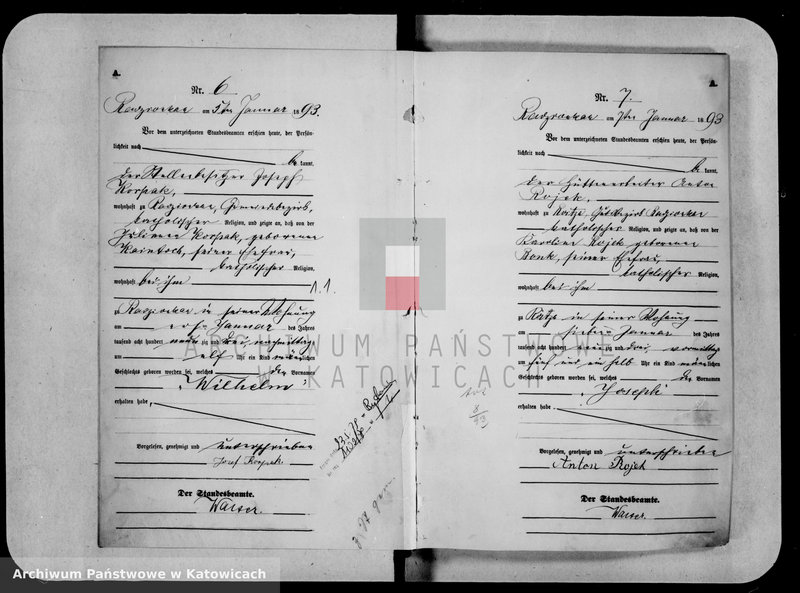 A.
Nr. 6
Radzionkau am 5ten Januar 1893.
Vor dem unterzeichneten Standesbeamten erschien heute, der Persön-
lichkeit nach
be kannt,
der Stellenbesitzer Joseph
Korpak,
wohnhaft zu Radzionkau, Gemeindebezirk,
katholischer Religion, und zeigte an, daß von der
Julianna Korpak, geborenen
seiner Ehefrau,
katholischer Religion,
wohnhaft bei ihm
1.1.
zu Radzionkau in seiner Wohnung
am ersten Januar des Jahres
tausend acht hundert neunzig und drei, nachmittags
um elf Uhr ein Kind männlichen
Geschlechts geboren worden sei, welches den Vornamen
"Wilhelm"
erhalten habe.
Vorgelesen, genehmigt und unterschrieben
Josef Korpak
Der Standesbeamte.
A.
Nr. 7.
Radzionkau am 7ten Januar 1893
Vor dem unterzeichneten Standesbeamten erschien heute, der Persön-
lichkeit nach
be kannt,
der Hüttenarbeiter Anton
Rojek,
wohnhaft zu Gutsbezirk Radzionkau
katholischer Religion, und zeigte an, daß von der
Karoline Rojek geborenen
seiner Ehefrau,
katholischer Religion,
wohnhaft bei ihm
zu in seiner Wohnung
am Januar des Jahres
tausend acht hundert neunzig und drei, vormittags
um ein halb Uhr ein Kind männlichen
Geschlechts geboren worden sei, welches den Vornamen
Joseph
erhalten habe.
Vorgelesen, genehmigt und unterschrieben
Anton Rojek
Der Standesbeamte.
ARCHIWUM PAŃSTWOWE
W KATOWICACH
Archiwum Państwowe w Katowicach